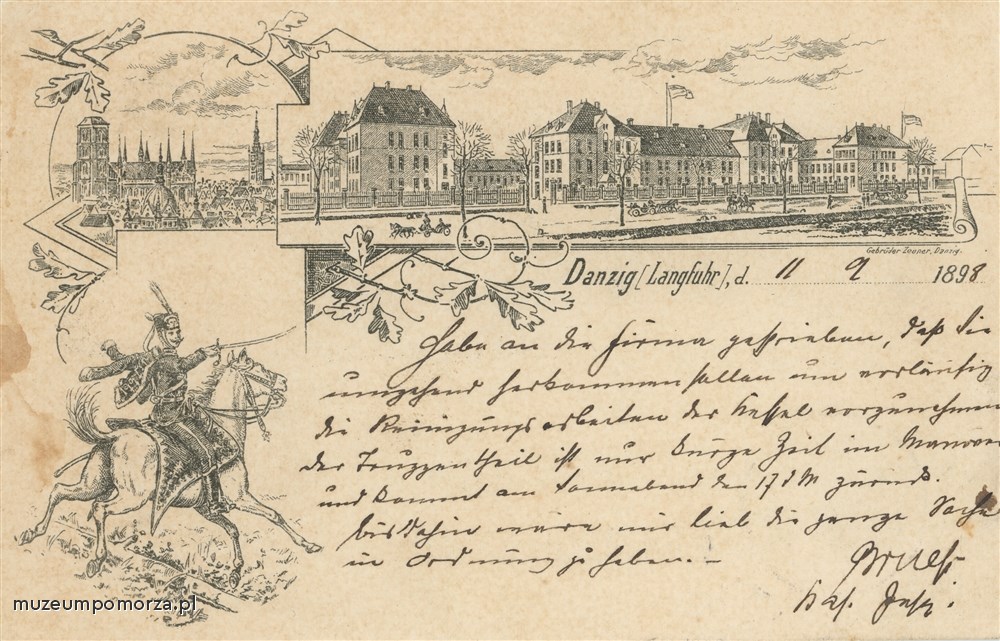 Gebrüder Zeuner, Danzig.
Danzig [Langfuhr], d. 11 9 1898
Habe an die Firma geschrieben, daß Sie
umgehend herkommen sollen um vorläufig
die Reinigungsarbeiten der Kessel vorzunehmen
der Truppentheil ist nur kurze Zeit im Manöver
und kommt am Sonnabend den 17 d M zurück.
bis dahin wäre mir lieb die ganze Sache
in Ordnung zu haben. –
Gruß
muzeumpomorza.pl